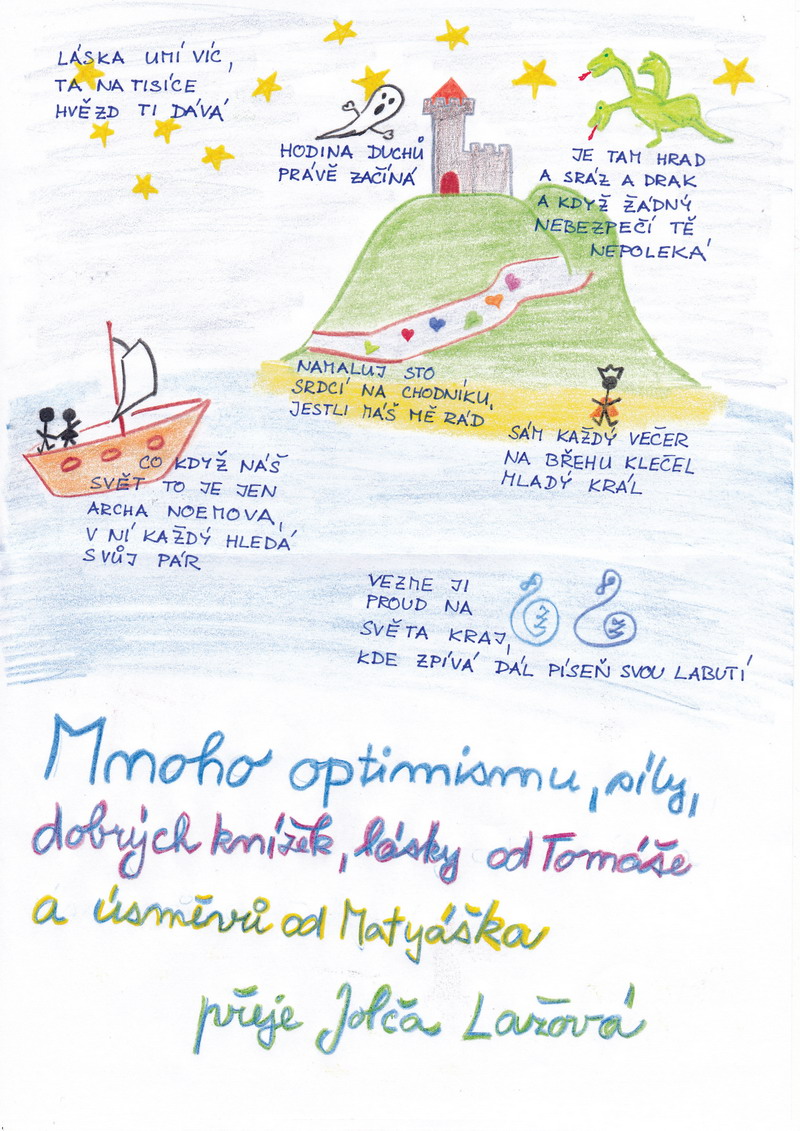 LÁSKA UMÍ VÍC,
TA NA TISÍCE
HVĚZD TI DÁVÁ
HODINA DUCHŮ
PRÁVĚ ZAČÍNÁ
JE TAM HRAD
A SRÁZ A DRAK
A KDYŽ ŽÁDNÝ
NEBEZPEČÍ TĚ
NEPOLEKÁ
NAMALUJ STO
SRDCÍ NA CHODNÍKU,
JESTLI MÁŠ MĚ RÁD
SÁM KAŽDÝ VEČER
NA BŘEHU KLEČEL
MLADÝ KRÁL
CO KDYŽ NÁŠ
SVĚT TO JE JEN
ARCHA NOEMOVA,
V NÍ KAŽDÝ HLEDÁ
SVŮJ PÁR
VEZME JI
PROUD NA
SVĚTA KRAJ,
KDE ZPÍVÁ DÁL PÍSEŇ SVOU LABUTÍ
Mnoho optimismu, síly,
dobrých knížek, lásky od Tomáše
a úsměvů od Matyáška
přeje Jolča Lažová